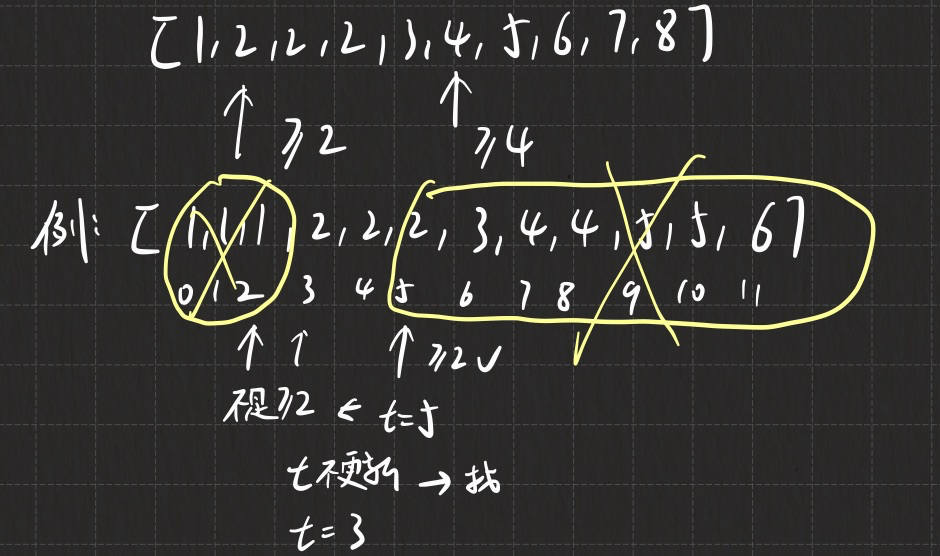 [1,2,2,2,3,4,5,6,7,8]
≥2 ≥4
例: [1,1,1,2,2,2,3,4,4,5,5,6]
0 1 2 3 4 5 6 7 8 9 10 11
≥2 √
不是≥2 ← t=5
t不更新 → 找
t=3